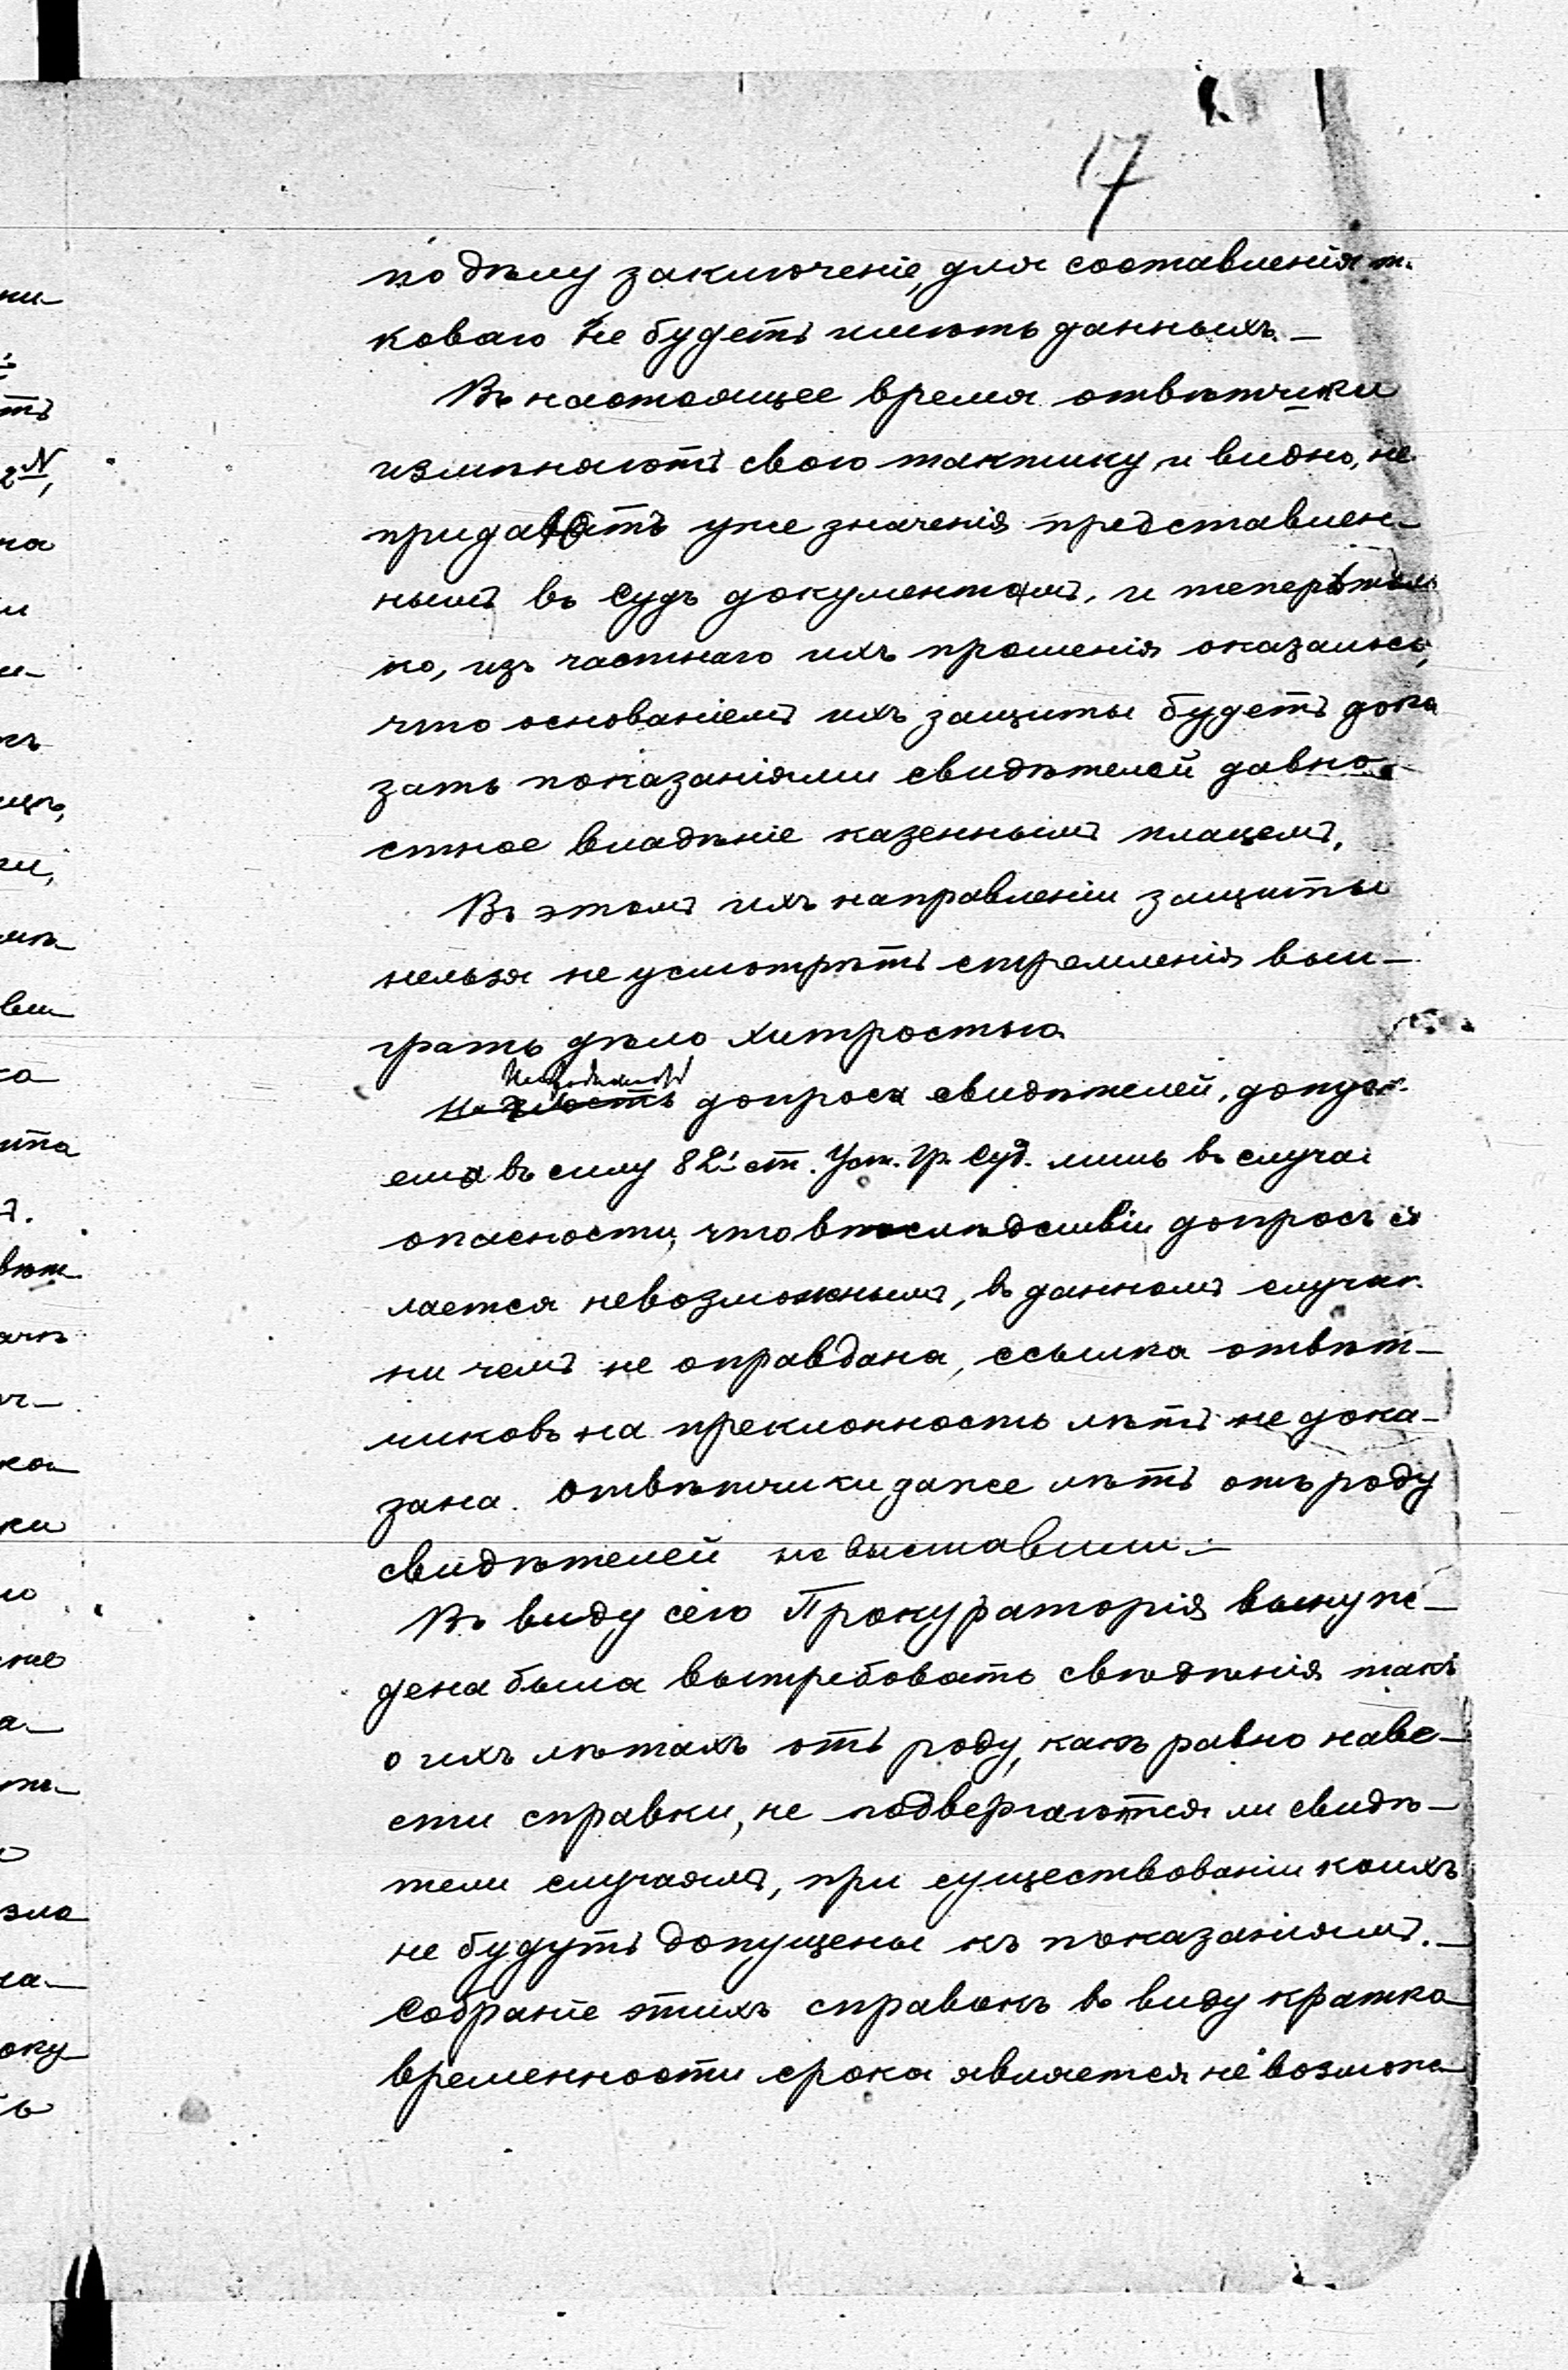 17
по дѣлу заключеніе, для составленія т.
коваго не будетъ имѣть данныхъ. —
Въ настоящее время отвѣтчики
измѣняютъ свою тактику, и видно, не
придаютъ уже значенія представлен-
нымъ въ Судъ документамъ, и теперь толь
ко, изъ частнаго ихъ прошенія оказалось,
что основаніемъ ихъ защиты будетъ дока
зать показаніями свидѣтелей давно-
стное владѣніе казеннымъ плацемъ,
Въ этомъ ихъ направленіи защиты
нельзя не усмотрѣть стремленія выи-
грать дѣло хитростью
Необходимость допроса свидѣтелей, допуск.
ема въ силу 82¹ ст. Уст. Гр. Суд. лишь въ случаѣ
опасности, что впослѣдствіи допросъ сд
лается невозможнымъ, въ данномъ случаѣ
ни чемъ не оправдана, ссылка отвѣт-
чиковъ на преклонность лѣтъ не дока-
зана. Отвѣтчики даже лѣтъ отъ роду
свидѣтелей не выставили. —
Въ виду сего Прокураторія вынуж-
дена была вытребовать свѣдѣнія такъ
о ихъ лѣтахъ отъ роду, какъ равно наве-
сти справки, не подвергаются ли свидѣ-
тели случаямъ, при существованіи коихъ
не будутъ допущены къ показаніямъ. —
Собраніе этихъ справокъ въ виду кратко
временности срока является не возможн
ни-
тъ
2 №,
на
и
и-
ка
вѣт.
ко-
ки
ю
ние
а-
эма
ка-
оку-